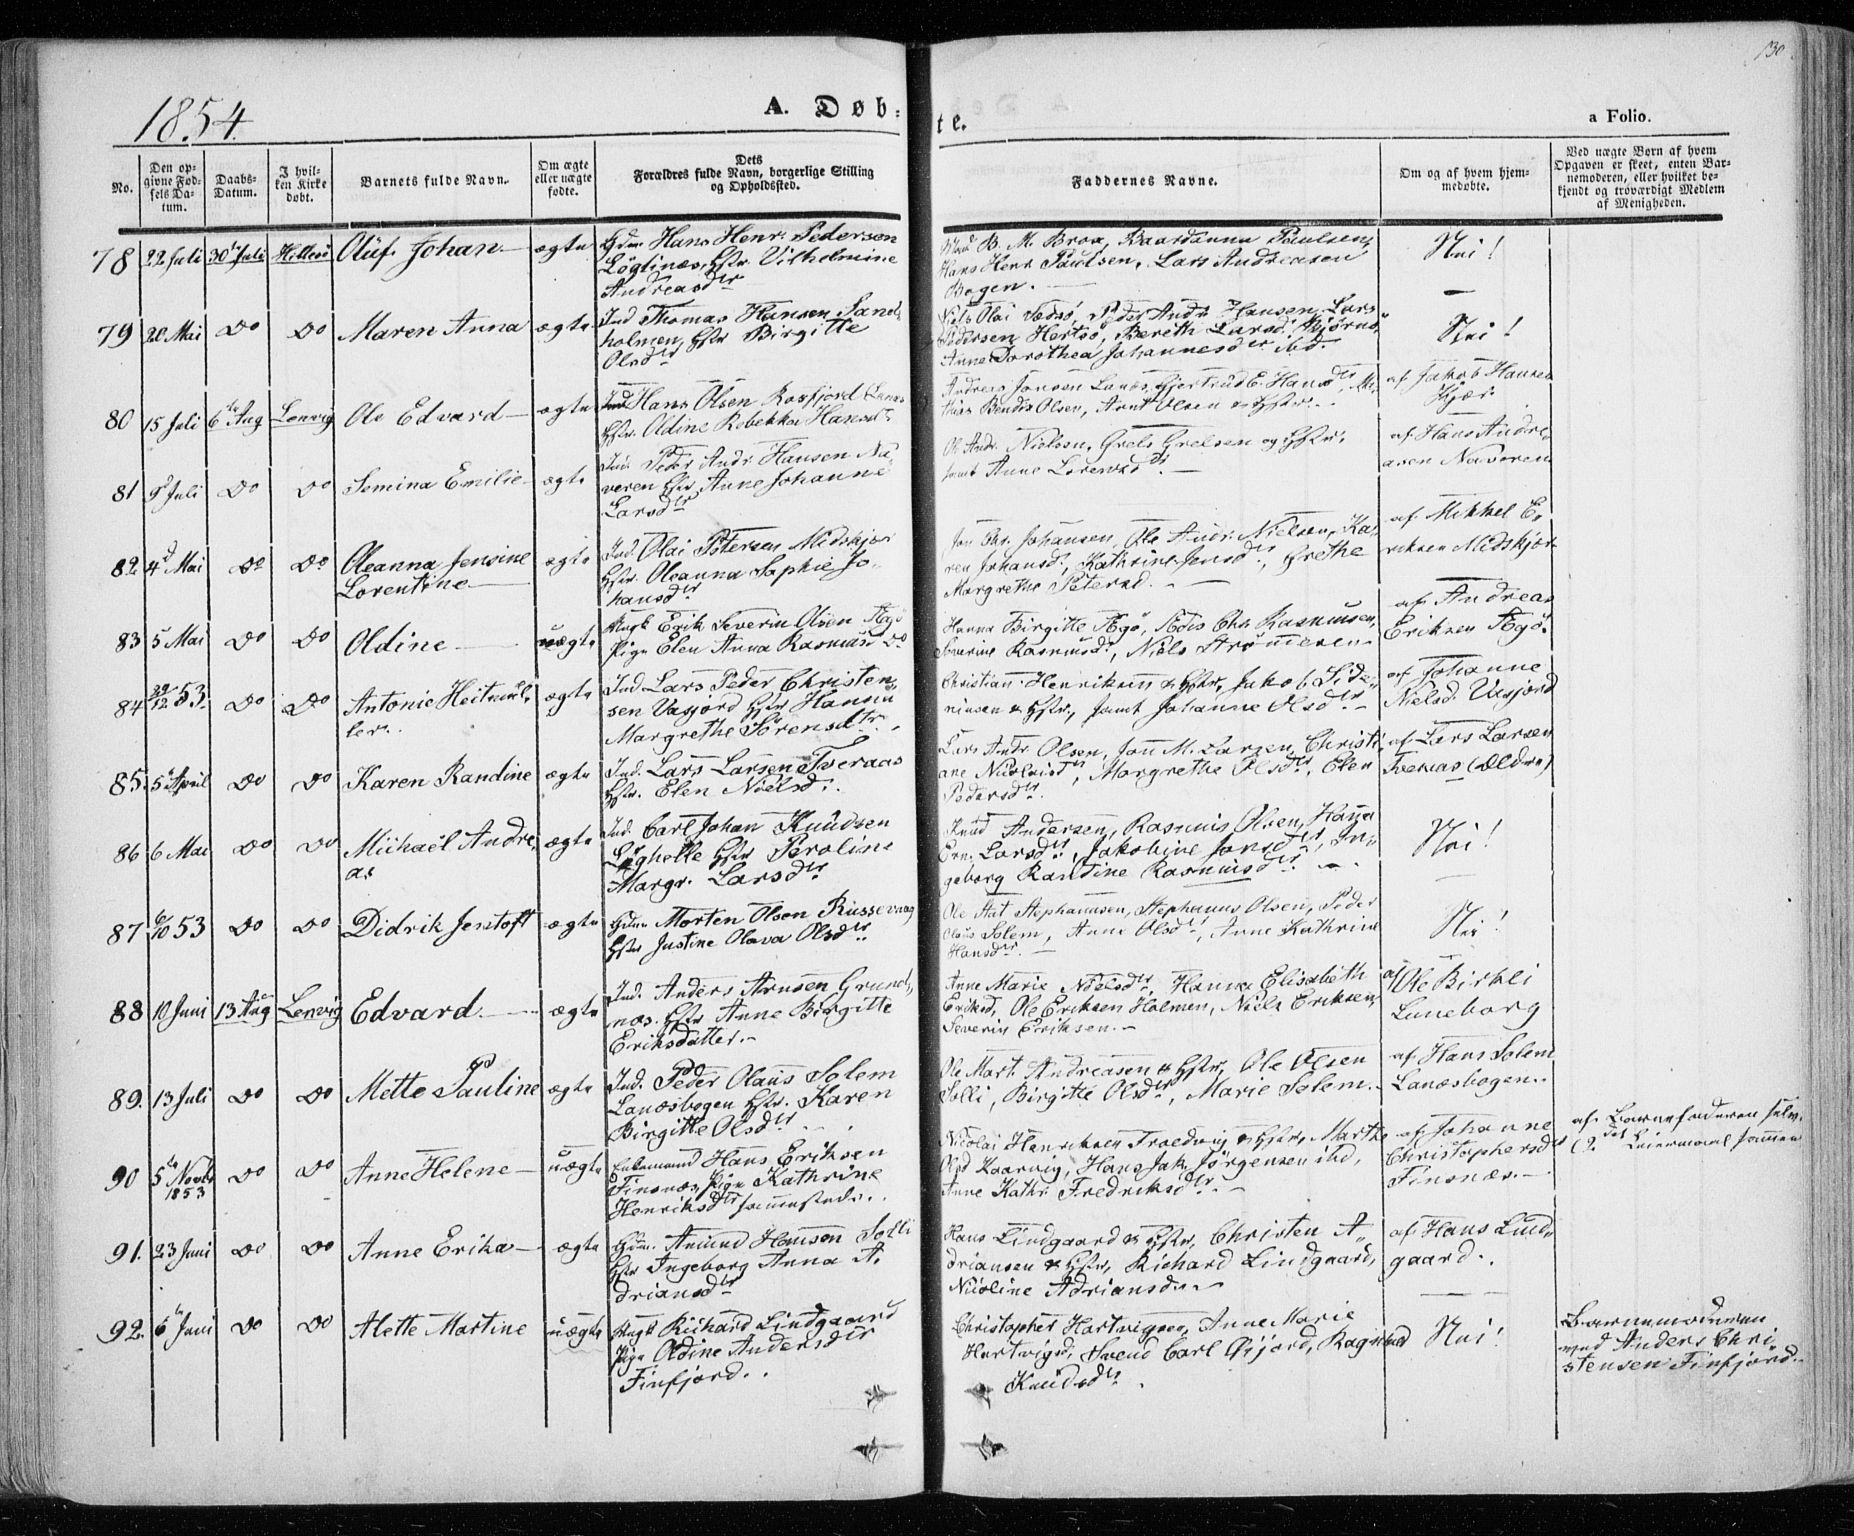 130
1854.
A. Døb-
te.
a Folio.
No.
Den op-
givne Fød-
sels Da-
tum.
Daabs-
Datum.
I hvil-
ken Kirke
døbt.
Barnets fulde Navn.
Om ægte
eller uægte
fødte.
Dets
Forældres fulde Navn, borgerlige Stilling
og Opholdssted.
Faddernes Navne.
Om og af hvem hjem-
medøbte.
Ved uægte Børn af hvem
Opgaven er skeet, enten Bar-
nemoderen, eller hvilket be-
kjendt og troværdigt Medlem
af Menigheden.
78 22 Juli 30te Juli Hillesö Oluf Johan ægte
Gdm. Hans Henr. Pedersen
Löglinæs, Hstr Vilhelmine
Andreasdr
B. M. Brox, Baardsenna Paulsen,
Hans Henr. Paulsen, Lars Andreasen
Bogen.
Nei!
79 20 Mai Do Do Maren Anna ægte
Ind Thomas Hansen Sand-
holmen, Hstr Birgitte
Olsdr
Niels Olai Peder Andr. Hansen, Lars
Pedersen Bereth Larsd.
Anne Dorothea Johannesdr ibd
Nei!
80 15 Juli 6te Aug Lenvig Ole Edvard ægte
Ind Hans Olsen Rossfjord
Hstr. Odine Rebekka Hansdr
Andreas Jonsen Lanes, Gjertrud E. Hansdr, Ma-
thias Bendix Olsen, Arnt Olsen & Hstr.
af Jakob Hansen
Kjær
81 9 Juli Do Do Semina Emilie ægte
Ind. Peder Andr. Hansen Na-
veren Hstr Anne Johanne
Larsdr
Ol. Andr. Nielsen, Grels Grelsen og Hstr.
samt Anne Lorentsdr
af Hans Andre-
asen Naveren
82 4d Mai Do Do Oleanna Jensine
Lorentine ægte
Ind. Olai Petersen Midskjær
Hstr. Oleanna Sophie Jo-
hansdr
Jon Chr. Johansen, Ole Andr. Nielsen, Ka-
ren Johansd., Kathrine Jensdr, Grethe
Margrethe Petersd.
af Mikkel E-
riksen Midskjær
83 5 Mai Do Do Oldine uægte
Ungk Erik Severin Olsen
Pige Elen Anna Rasmusd Do
Hanna Birgitte Chr. Rasmusen,
Severine Rasmusdr, Niels Strömmesen
af Andreas
Eriksen
84 29/12 53. Do Do Antonie Heitmül-
ler. ægte
Ind. Lars Peder Christen-
sen Vasjord Hstr Hanna
Margrethe Sörensdtr.
Christian Henriksen & Hstr, Jakob Pede-
rinsen & Hstr., samt Johanne Olsdr
af Johanne
Nielsd. Vasjord
85. 5 April Do Do Karen Randine ægte
Ind. Lars Larsen Tveraas
Hstr. Elen Nielsd.
Lars Andr. Olsen, Jon M. Larsen, Christi-
ane Nicolaisdr, Margrethe Olsdr, Elen
Pedersdr.
af Lars Larsen
Tveraas (Ældre)
86 6 Mai Do Do Michael Andre-
as ægte
Ind. Carl Johan Knudsen
Löghelle Hstr Peroline
Margr. Larsdr
Knud Andersen, Rasmus Olsen, Hanna
Ern. Larsdr, Jakobine Jonsdr, In-
geborg Randine Rasmusdr.
Nei!
87 6/10 53 Do Do Didrik Jentoft ægte
Gdm Morten Olsen Russevaag
Hstr Justine Olava Olsdr
Ole Aat Stephanusen, Stephanus Olsen, Peder
Claus Solem, Anne Olsdr, Anne Kathrine
Hansdr.
Nei!
88 10 Juni 13 Aug Lenvig Edvard ægte
Ind. Anders Arnsen Grund-
næs Hstr Anne Birgitte
Eriksdatter.
Anne Marie Nielsdr, Hanna Elisabeth
Eriksd, Ole Eriksen Holmen, Niels Eriksen,
Severin Eriksen.
af Ole Birkli
Luneborg
89. 13 Juli Do Do Mette Pauline ægte
Ind. Peder Olaus Solem
Lanæsbogen Hstr. Karen
Birgitte Olsdr
Ole Mart. Andreasen & Hstr, Ole Olsen
Solli, Birgitte Olsdr, Marie Solem.
af Hans Solem
Lanæsbogen.
90 5te Novbr
1853 Do Do Anne Helene uægte
Enkemand Hans Eriksen
Finsnæs, Pige Kathrine
Henriksdr sammesteds.
Nicolai Henriksen Trædvig & Hstr, Marthe
Olsd Kaarvig, Hans Jak. Jörgensen ibd,
Anne Kathr. Fredriksdr
af Johanne
Christophersdr
Finsnæs.
af Barnefaderen selv,
(2det Leiermaal sammen
91. 23 Juni Do Do Anne Erika ægte
Gdm. Amund Hansen Solli
Hstr Ingeborg Anna A-
driansdr
Hans Lindgaard & Hstr, Christen A-
driansen & Hstr, Richard Lindgaard,
Nicoline Adriansd.
af Hans Lind-
gaard.
92. 6te Juni Do Do Alette Martine uægte
Ungk Richard Lindgaard
Pige Oldine Andersdr
Finfjord.
Christopher Hartvigsen, Anne Marie
Hartvigsd, Svend Carl Gisjord, Ragnhild
Knudsdr.
Nei!
Barnemoderen
med Anders Chri-
stensen Finfjord.